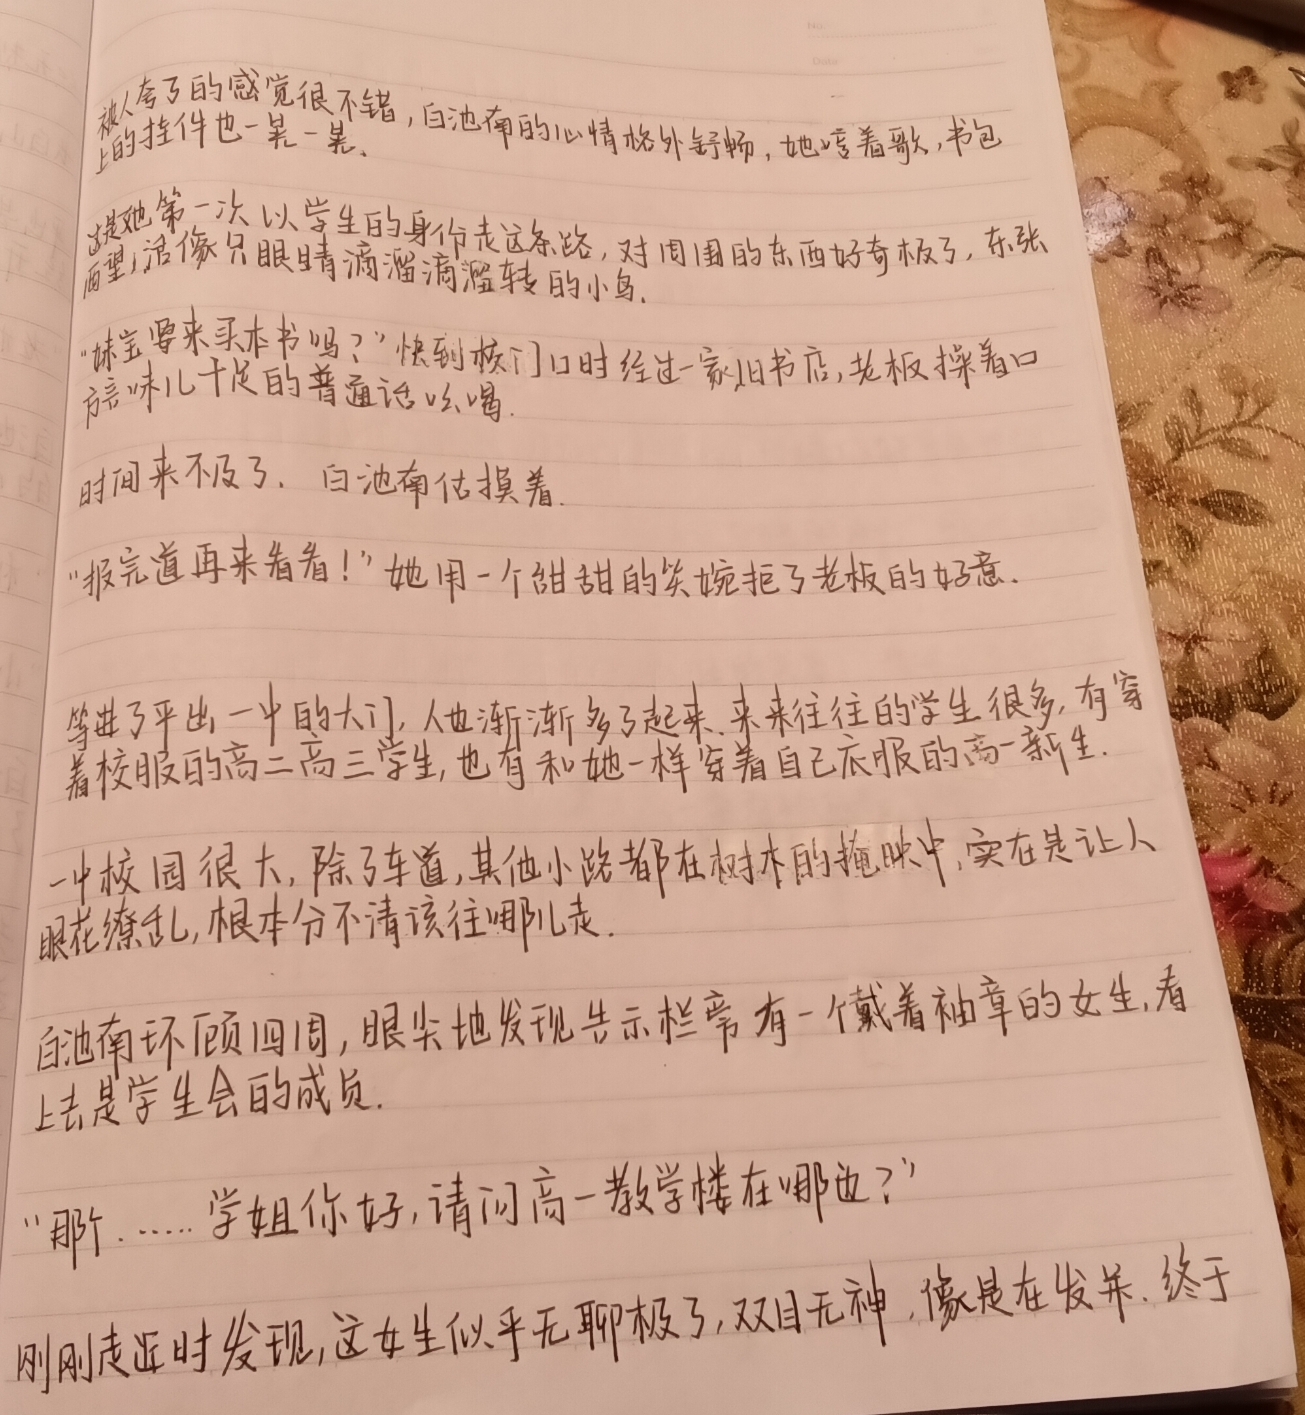 No.
Date
被人夸了的感觉很不错，白池南的心情格外舒畅，她哼着歌，书包
上的挂件也一晃一晃．
这是她第一次以学生的身份走这条路，对周围的东西好奇极了，东张
西望，活像只眼睛滴溜滴溜转的小鸟．
“妹宝要来买本书吗？”快到校门口时经过一家旧书店，老板操着口
方言味儿十足的普通话吆喝．
时间来不及了．白池南估摸着．
“报完道再来看看！”她用一个甜甜的笑婉拒了老板的好意．
等进了平出一中的大门，人也渐渐多了起来．来来往往的学生很多，有穿
着校服的高二高三学生，也有和她一样穿着自己衣服的高一新生．
一中校园很大，除了车道，其他小路都在树木的掩映中，实在是让人
眼花缭乱，根本分不清该往哪儿走．
白池南环顾四周，眼尖地发现告示栏旁有一个戴着袖章的女生，看
上去是学生会的成员．
“那个．……学姐你好，请问高一教学楼在哪边？”
刚刚走近时发现，这女生似乎无聊极了，双目无神，像是在发呆．终于